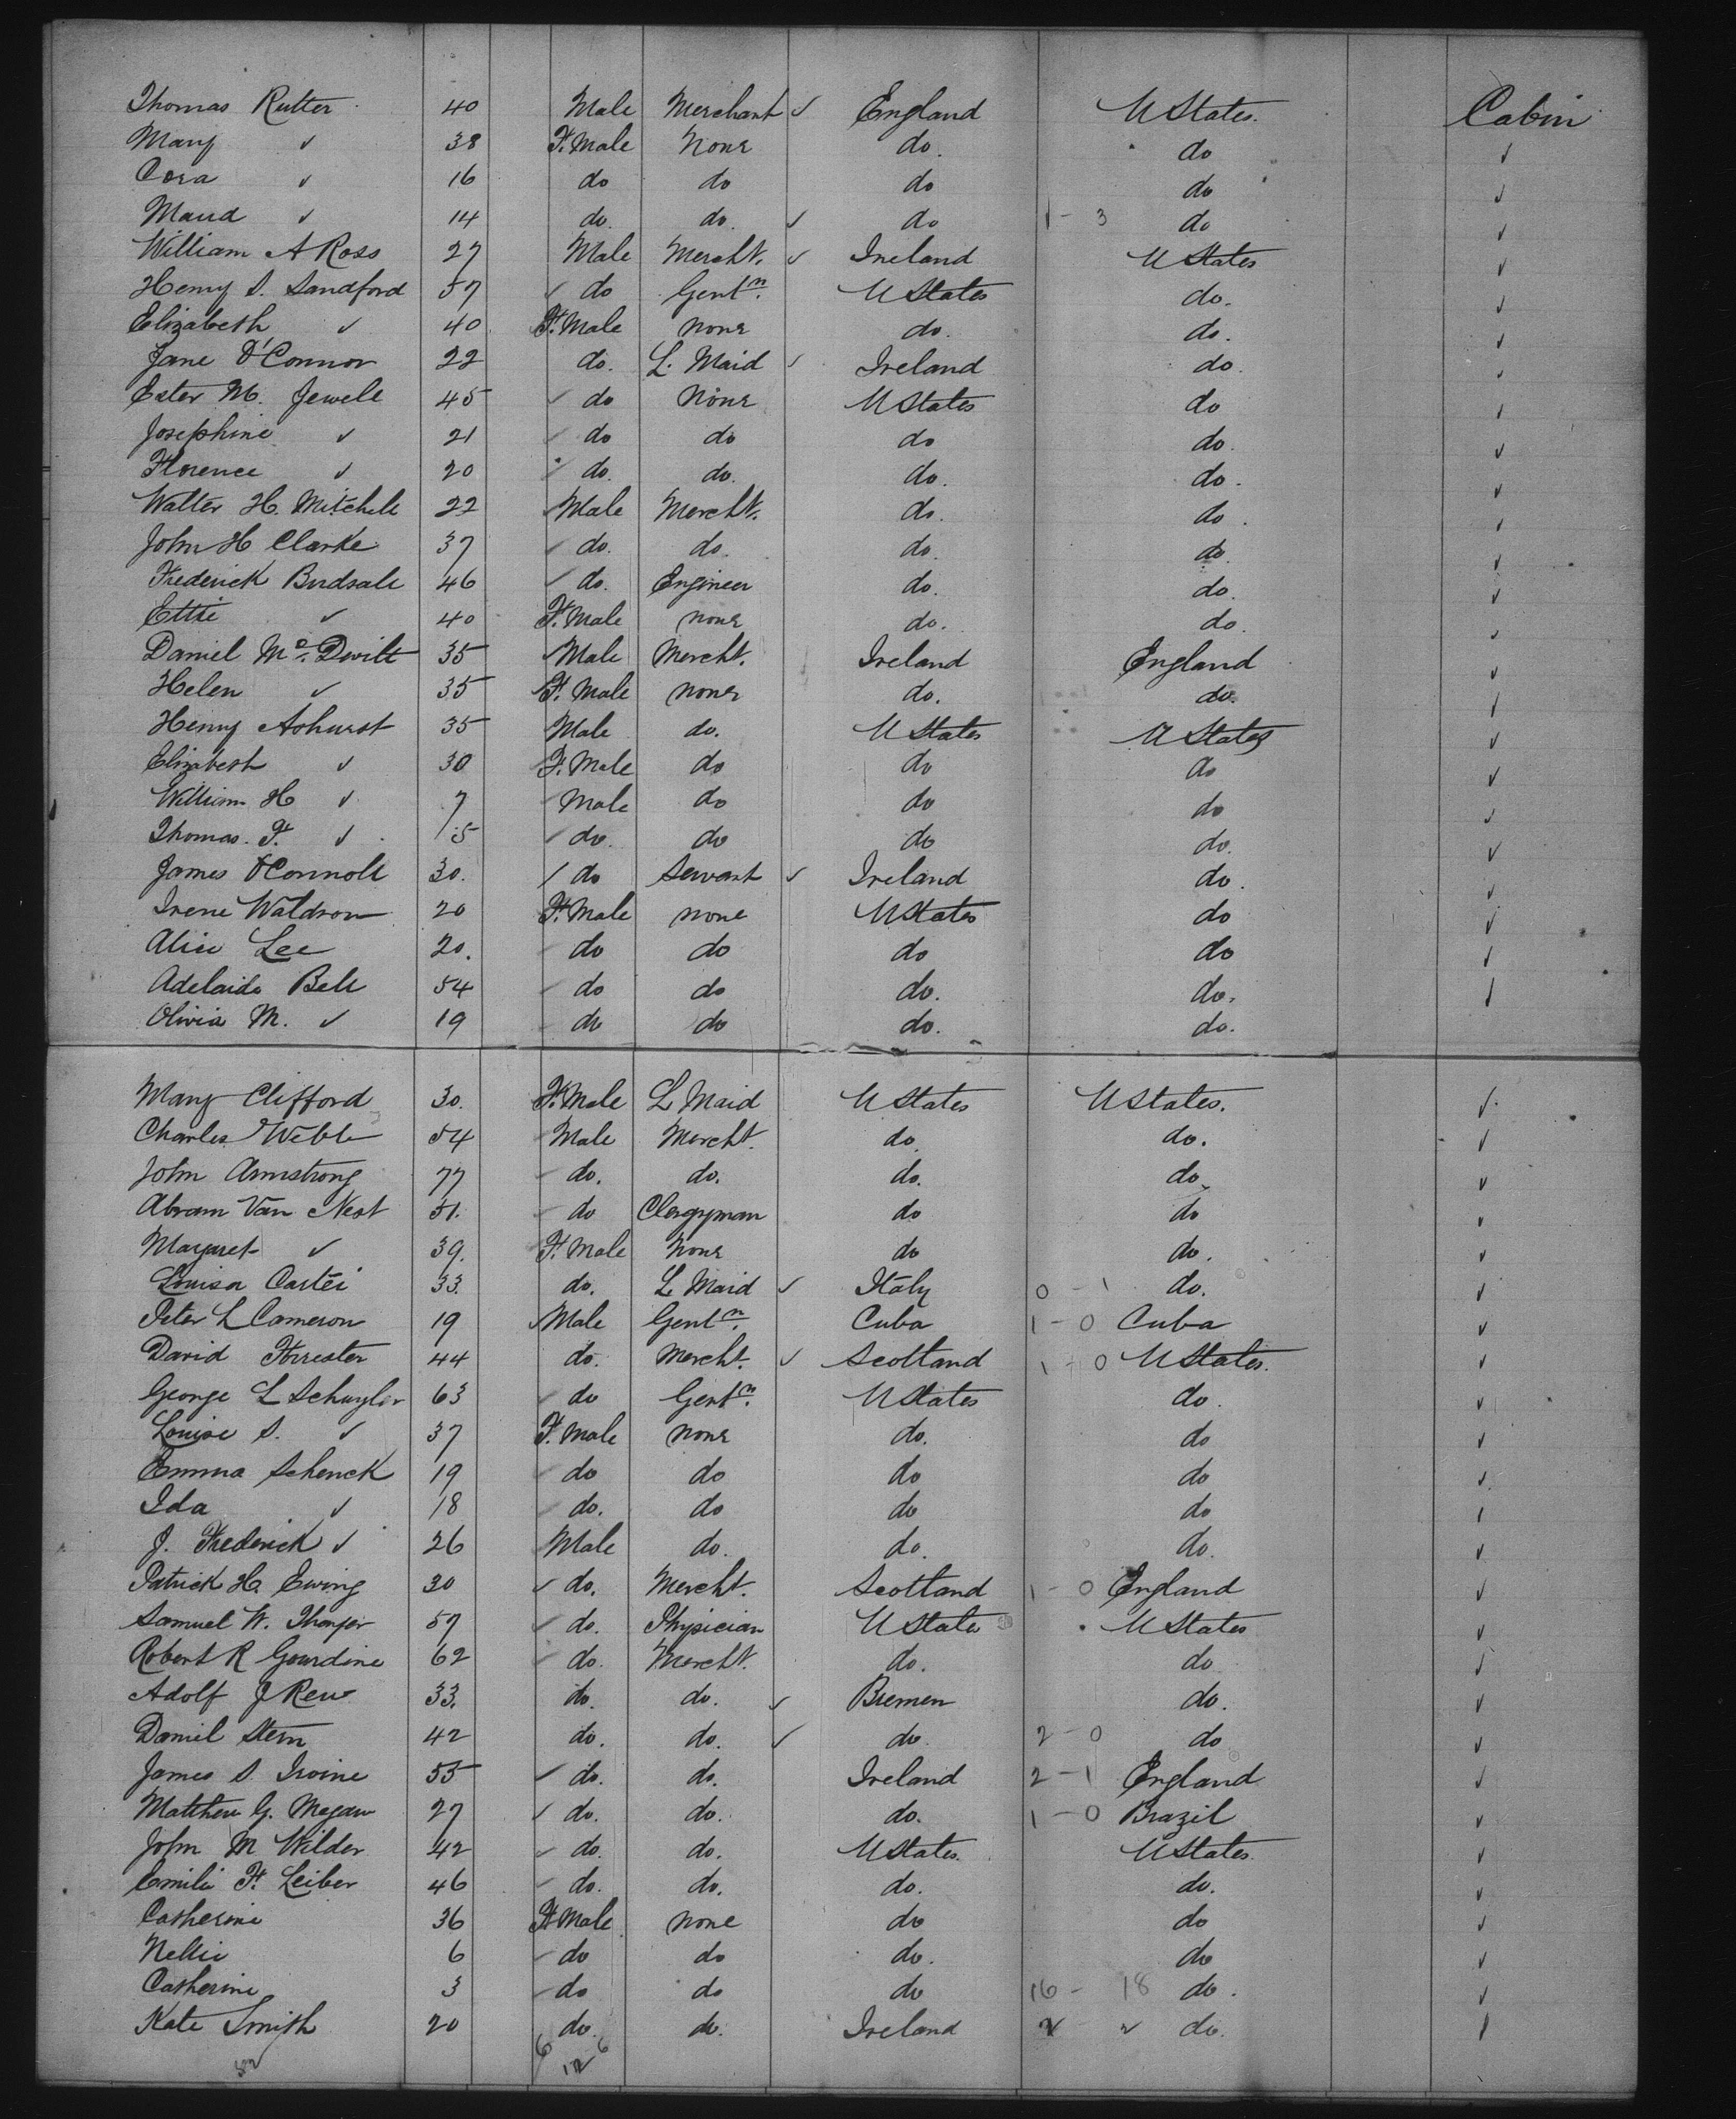 Thomas Rutter 40 Male Merchant ✓ England U States. Cabin
Mary ✓ 38 F. Male None do. do ✓
Cora ✓ 16 do do do do ✓
Maud ✓ 14 do. do. ✓ do 1 - 3 do ✓
William A Ross 27 Male Mercht. ✓ Ireland U States ✓
Henry S. Sandford 57 ✓ do Gentn. U States do. ✓
Elizabeth ✓ 40 F. Male none do. do. ✓
Jane O'Connor 22 do. L. Maid ✓ Ireland do. ✓
Ester M. Jewell 45 ✓ do None U States do ✓
Josephine ✓ 21 ✓ do do do do. ✓
Florence ✓ 20 ✓ do. do. do. do. ✓
Walter H. Mitchell 22 Male Mercht. do. do. ✓
John H Clarke 37 ✓ do. do. do. do ✓
Frederick Birdsall 46 ✓ do. Engineer do. do. ✓
Ettie ✓ 40 F. Male none do. do. ✓
Daniel Mc. Devitt 35 Male Mercht. Ireland England ✓
Helen ✓ 35 F. Male none do. do. ✓
Henry Ashurst 35 Male do. U States U States ✓
Elizabeth ✓ 30 F. Male do do do ✓
William H ✓ 7 Male do do do ✓
Thomas. F. ✓ 5 / do. do do do. ✓
James O'Connell 30. / do Servant ✓ Ireland do. ✓
Irene Waldron 20 F. Male none U States do ✓
Alice Lee 20. do do do do ✓
Adelaide Bell 54 do do do. do. ✓
Olivia M. ✓ 19 do do do. do.
Mary Clifford 30. F. Male L Maid U States U States. ✓
Charles Webb 54 Male Mercht. do. do. ✓
John Armstrong 77 do. do. do. do. ✓
Abram Van Nest 51. do Clergyman do do ✓
Margaret ✓ 39. F. Male None do do. ✓
Louisa 33. do. L. Maid ✓ Italy 0 - 1 do. ✓
Peter L Cameron 19 Male Gentn. Cuba 1 - 0 Cuba ✓
David Forrester 44 do. Mercht. ✓ Scotland 1 - 0 U States. ✓
George L Schuyler 63 do Gentn. U States do. ✓
Louise S. ✓ 37 F. Male none do. do ✓
Emma Schenck 19 do do do do ✓
Ida ✓ 18 do. do do do ✓
J. Frederick ✓ 26 Male do. do. do. ✓
Patrick H. Ewing 30 ✓ do. Mercht. Scotland 1 - 0 England ✓
Samuel W. Thayer 57 ✓ do. Physician U States U States ✓
Robert R Gourdine 62 do. Mercht. do. do ✓
Adolf J 33. do. do. ✓ Bremen do. ✓
Daniel Stern 42 do. do. ✓ do. 2 - 0 do ✓
James S. Irvine 55 ✓ do. do. Ireland 2 - 1 England ✓
Matthew G. Megaw 27 ✓ do. do. do. 1 - 0 Brazil ✓
John M Wilder 42 ✓ do. do. U States. U States. ✓
Emile F. Leiber 46 do. do. do. do. ✓
Catherine 36 F. Male none do do ✓
Nellie 6 do do do. do ✓
Catherine 3 do do do 16 - 18 do. ✓
Kate Smith 20 do. do. Ireland 2 2 do. ✓
6 12 6